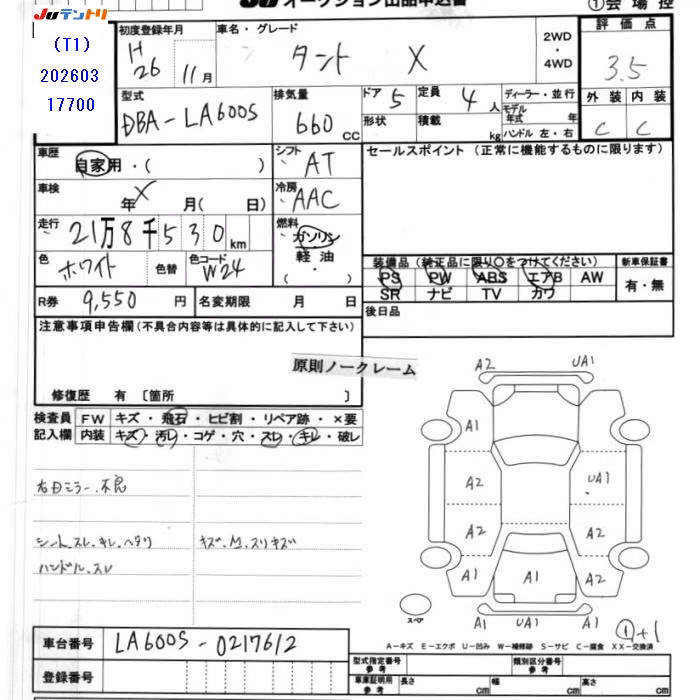 Juテントリ
Ju オークション出品申込書
①会場控
(T1)
202603
17700
初度登録年月
H
26 11月
車名・グレード
タント X
2WD
・
4WD
評価点
3.5
外装 内装
C C
型式
DBA-LA600S
排気量
660 CC
ドア 5
定員 4人
ディーラー・並行
形状
積載 kg
モデル年式 年
ハンドル 左・右
車歴
自家用・( )
シフト
AT
セールスポイント (正常に機能するものに限ります)
車検
X
年 月( 日)
冷房
AAC
走行
21万8千530km
燃料
ガソリン
軽油
(・)
色
ホワイト
色替
色コード
W24
装備品(純正品に限り○をつけてください)
新車保証書
PS PW ABS エアB AW
有・無
SR ナビ TV カワ
R券 9,550円
名変期限 月 日
後日品
注意事項申告欄(不具合内容等は具体的に記入して下さい)
原則ノークレーム
修復歴 有 〔箇所 〕
検査員 FW キズ・飛石・ヒビ割・リペア跡・×要
記入欄 内装 キズ・汚レ・コゲ・穴・スレ・キレ・破レ
右Dミラー.不良
シート.スレ.キレ.ヘタリ
ハンドル.スレ
A2 UA1
A1
A2 UA1
A2 A2
A1 A1 A2
スペア
A1 UA1 A1
①+1
車台番号 LA600S-0217612
A-キズ E-エクボ U-凹み W-補修跡 S-サビ C-腐食 XX-交換済
登録番号
型式指定番号 参考
類別区分番号 参考
車庫証明用 参考
長さ cm
幅 cm
高さ cm